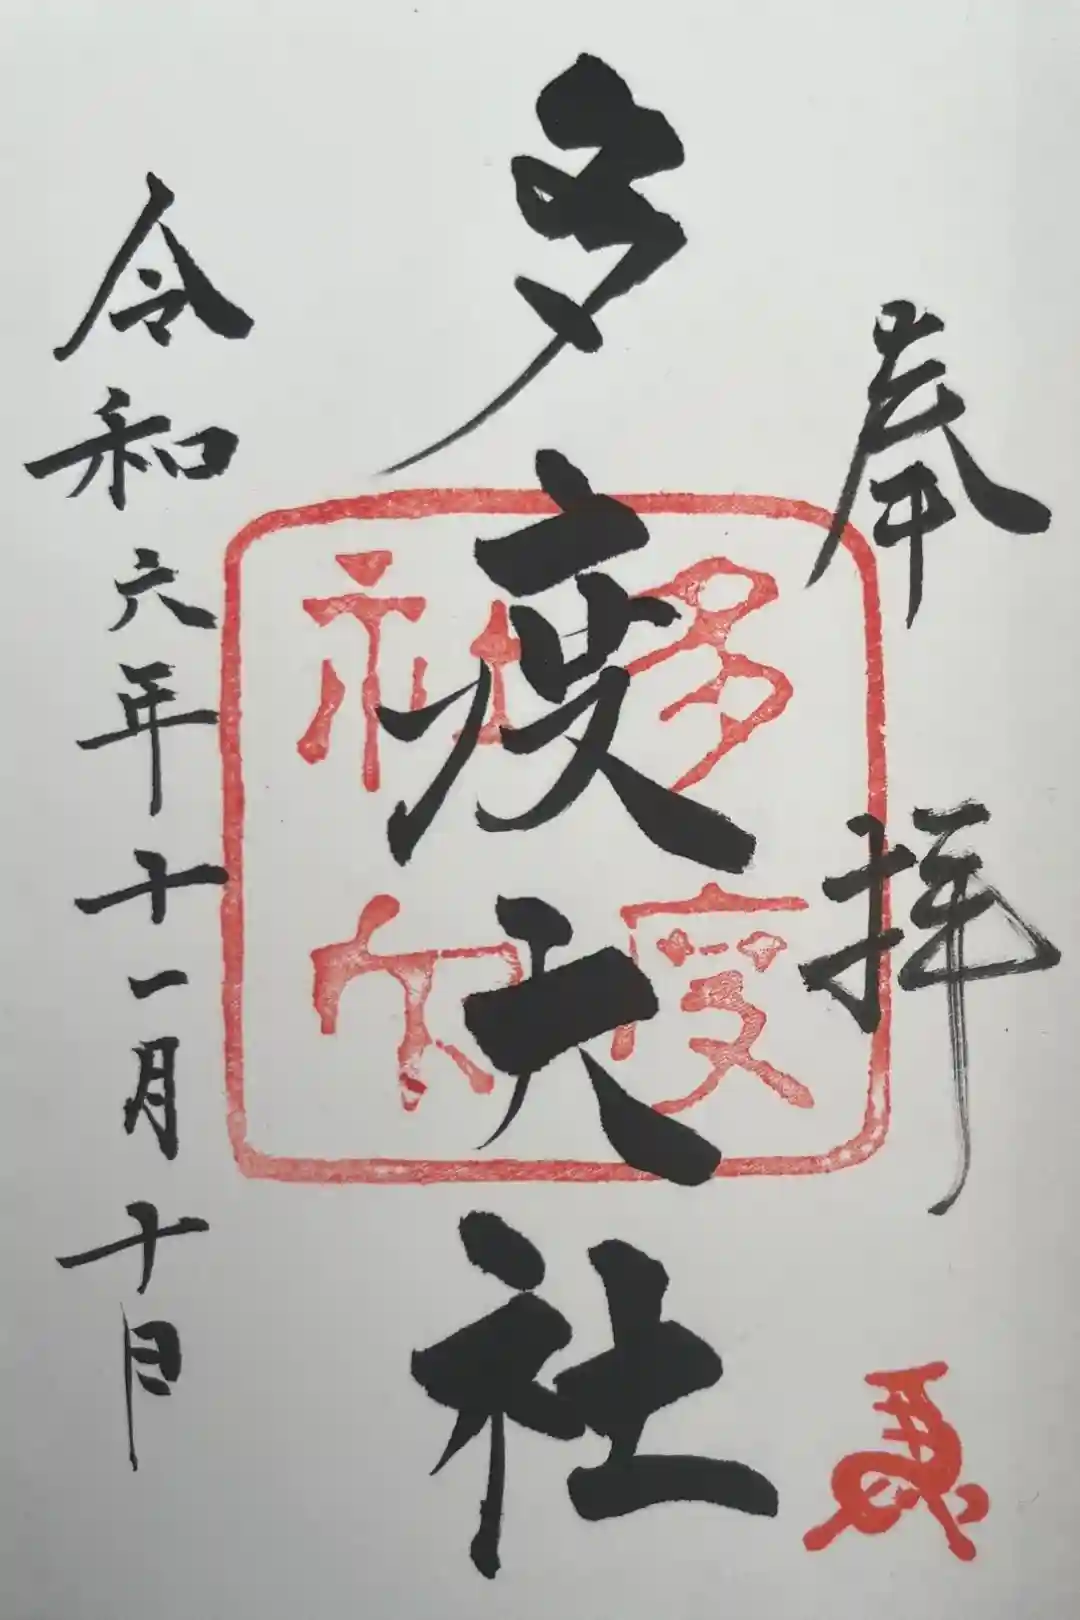 奉拝
多度大社
多度
令和六年十一月十日